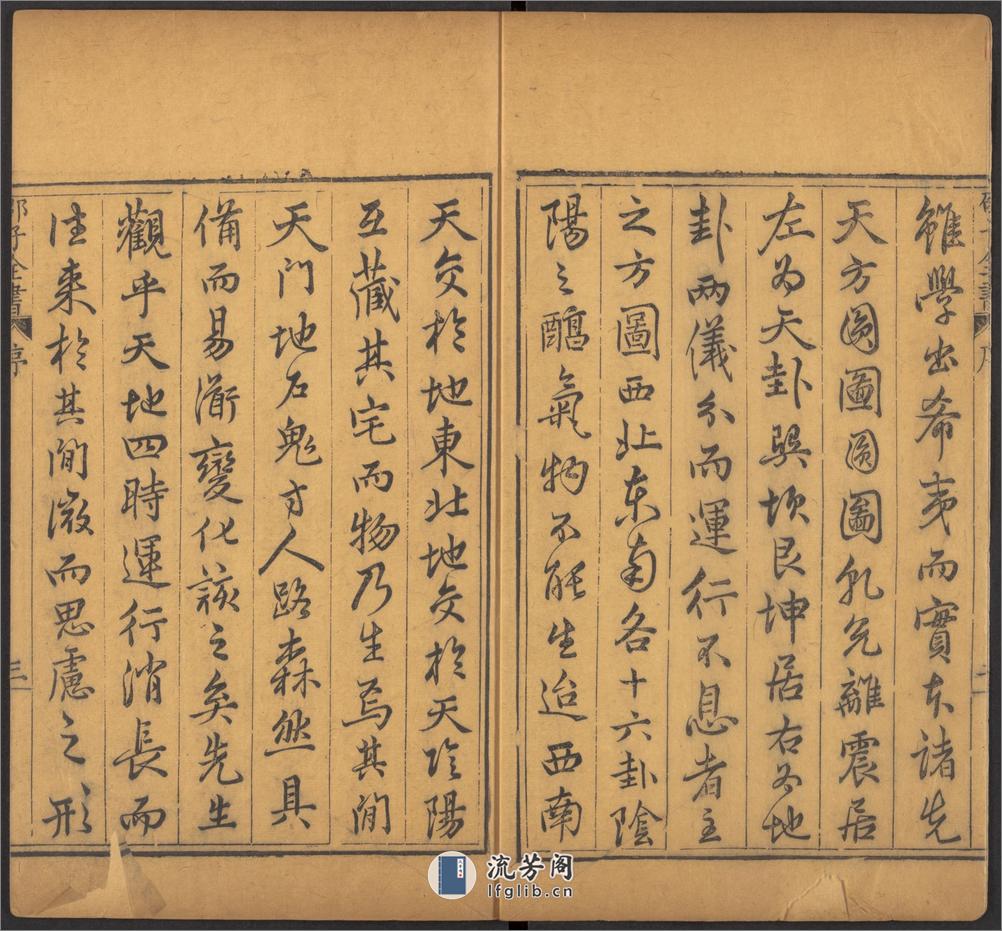 雖學出希夷而實本諸先
天方圓圖圓圖乹兌離震居
左為天卦巽坎艮坤居右為地
卦兩儀分而運行不息者主
之方圖西北東南各十六卦陰
陽之醕氣物不能生迨西南
天交於地東北地交於天陰陽
互藏其宅而物乃生焉其間
天門地戶鬼方人路森然具
備而易衍變化該之矣先生
觀乎天地四時運行消長而
往來於其間微而思慮之形
邵子全書 序 三
流芳阁
lfglib.cn